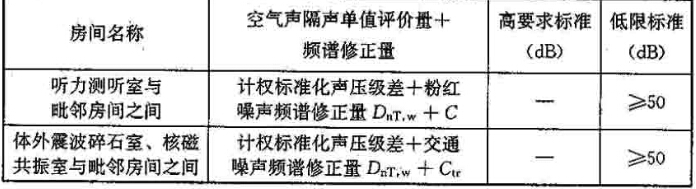 房间名称
空气声隔声单值评价量＋
频谱修正量
高要求标准
(dB)
低限标准
(dB)
听力测听室与
毗邻房间之间
计权标准化声压级差＋粉红
噪声频谱修正量 DnT,w + C
—
≥50
体外震波碎石室、核磁
共振室与毗邻房间之间
计权标准化声压级差＋交通
噪声频谱修正量 DnT,w + Ctr
—
≥50